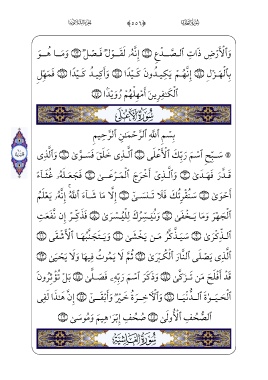 وَٱلْأَرْضِ ذَاتِ ٱلصَّدْعِ ۝ إِنَّهُۥ لَقَوْلٌ فَصْلٌ ۝ وَمَا هُوَ
بِٱلْهَزْلِ ۝ إِنَّهُمْ يَكِيدُونَ كَيْدًا ۝ وَأَكِيدُ كَيْدًا ۝ فَمَهِّلِ
ٱلْكَٰفِرِينَ أَمْهِلْهُمْ رُوَيْدًۢا ۝
سُورَةُ الأَعْلَى
بِسْمِ ٱللَّهِ ٱلرَّحْمَٰنِ ٱلرَّحِيمِ
۞ سَبِّحِ ٱسْمَ رَبِّكَ ٱلْأَعْلَى ۝ ٱلَّذِى خَلَقَ فَسَوَّىٰ ۝ وَٱلَّذِى
قَدَّرَ فَهَدَىٰ ۝ وَٱلَّذِىٓ أَخْرَجَ ٱلْمَرْعَىٰ ۝ فَجَعَلَهُۥ غُثَآءً
أَحْوَىٰ ۝ سَنُقْرِئُكَ فَلَا تَنسَىٰٓ ۝ إِلَّا مَا شَآءَ ٱللَّهُ إِنَّهُۥ يَعْلَمُ
ٱلْجَهْرَ وَمَا يَخْفَىٰ ۝ وَنُيَسِّرُكَ لِلْيُسْرَىٰ ۝ فَذَكِّرْ إِن نَّفَعَتِ
ٱلذِّكْرَىٰ ۝ سَيَذَّكَّرُ مَن يَخْشَىٰ ۝ وَيَتَجَنَّبُهَا ٱلْأَشْقَى ۝
ٱلَّذِى يَصْلَى ٱلنَّارَ ٱلْكُبْرَىٰ ۝ ثُمَّ لَا يَمُوتُ فِيهَا وَلَا يَحْيَىٰ ۝
قَدْ أَفْلَحَ مَن تَزَكَّىٰ ۝ وَذَكَرَ ٱسْمَ رَبِّهِۦ فَصَلَّىٰ ۝ بَلْ تُؤْثِرُونَ
ٱلْحَيَوٰةَ ٱلدُّنْيَا ۝ وَٱلْءَاخِرَةُ خَيْرٌ وَأَبْقَىٰٓ ۝ إِنَّ هَٰذَا لَفِى
ٱلصُّحُفِ ٱلْأُولَىٰ ۝ صُحُفِ إِبْرَٰهِيمَ وَمُوسَىٰ ۝
سُورَةُ الغَاشِيَةِ